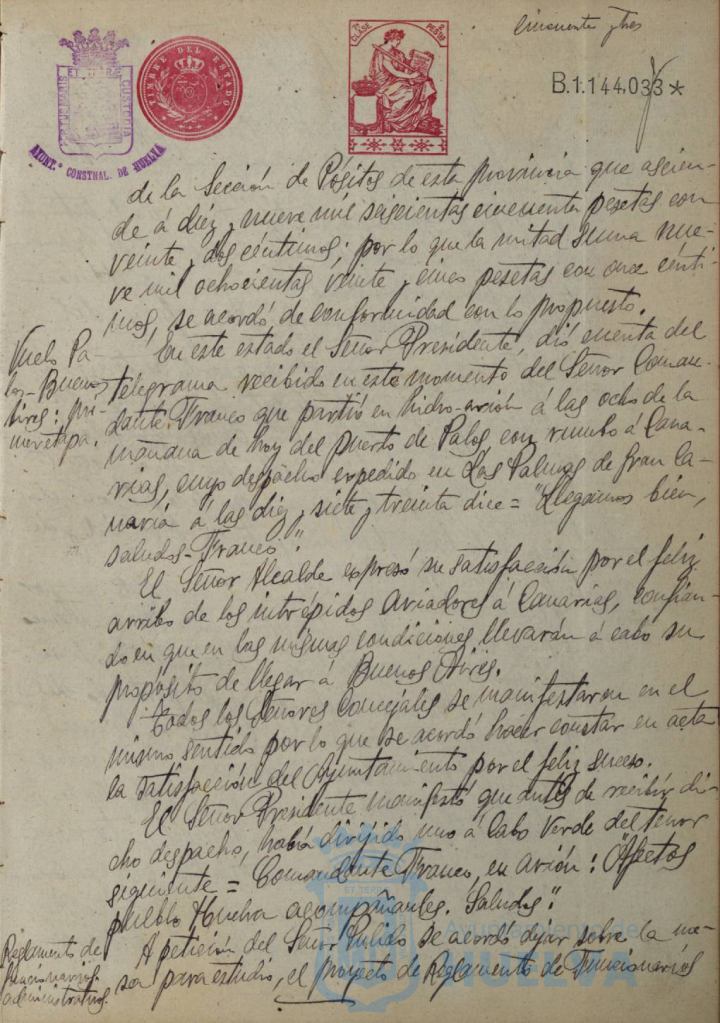 cincuenta y tres
7ª CLASE PESETAS 2
TIMBRE DEL ESTADO
B.1.144.033 *
AYUNT.º CONSTNAL. DE HUELVA
de la Sección de Pósitos de esta provincia que ascien-
de á diez y nueve mil seiscientas cincuenta pesetas con
veinte y dos céntimos; por lo que la mitad suma nue-
ve mil ochocientas veinte y cinco pesetas con once cénti-
mos, se acordó de conformidad con lo propuesto.
Vuelo Pa-
los-Buenos
Aires: pri-
mera etapa.
En este estado el Señor Presidente, dió cuenta del
telegrama recibido en este momento del Señor Coman-
dante Franco que partió en hidro-avión á las ocho de la
mañana de hoy del puerto de Palos, con rumbo á Cana-
rias, cuyo despacho expedido en Las Palmas de Gran Ca-
naria á las diez y siete y treinta dice = "Llegamos bien,
saludos-Franco".
El Señor Alcalde expresó su satisfacción por el feliz
arribo de los intrépidos aviadores á Canarias, confian-
do en que en las mismas condiciones llevarán á cabo su
propósito de llegar á Buenos Aires.
Todos los Señores Concejales se manifestaron en el
mismo sentido por lo que se acordó hacer constar en acta
la satisfacción del Ayuntamiento por el feliz suceso.
El Señor Presidente manifestó que antes de recibir di-
cho despacho, había dirijido uno á Cabo Verde del tenor
siguiente = Comandante Franco, en avión: Afectos
pueblo Huelva acompáñanles. Saludos".
Reglamento de
funcionarios
administrativos.
A petición del Señor Pulido se acordó dejar sobre la me-
sa para estudio, el proyecto de Reglamento de Funcionarios
Ayuntamiento de
HUELVA